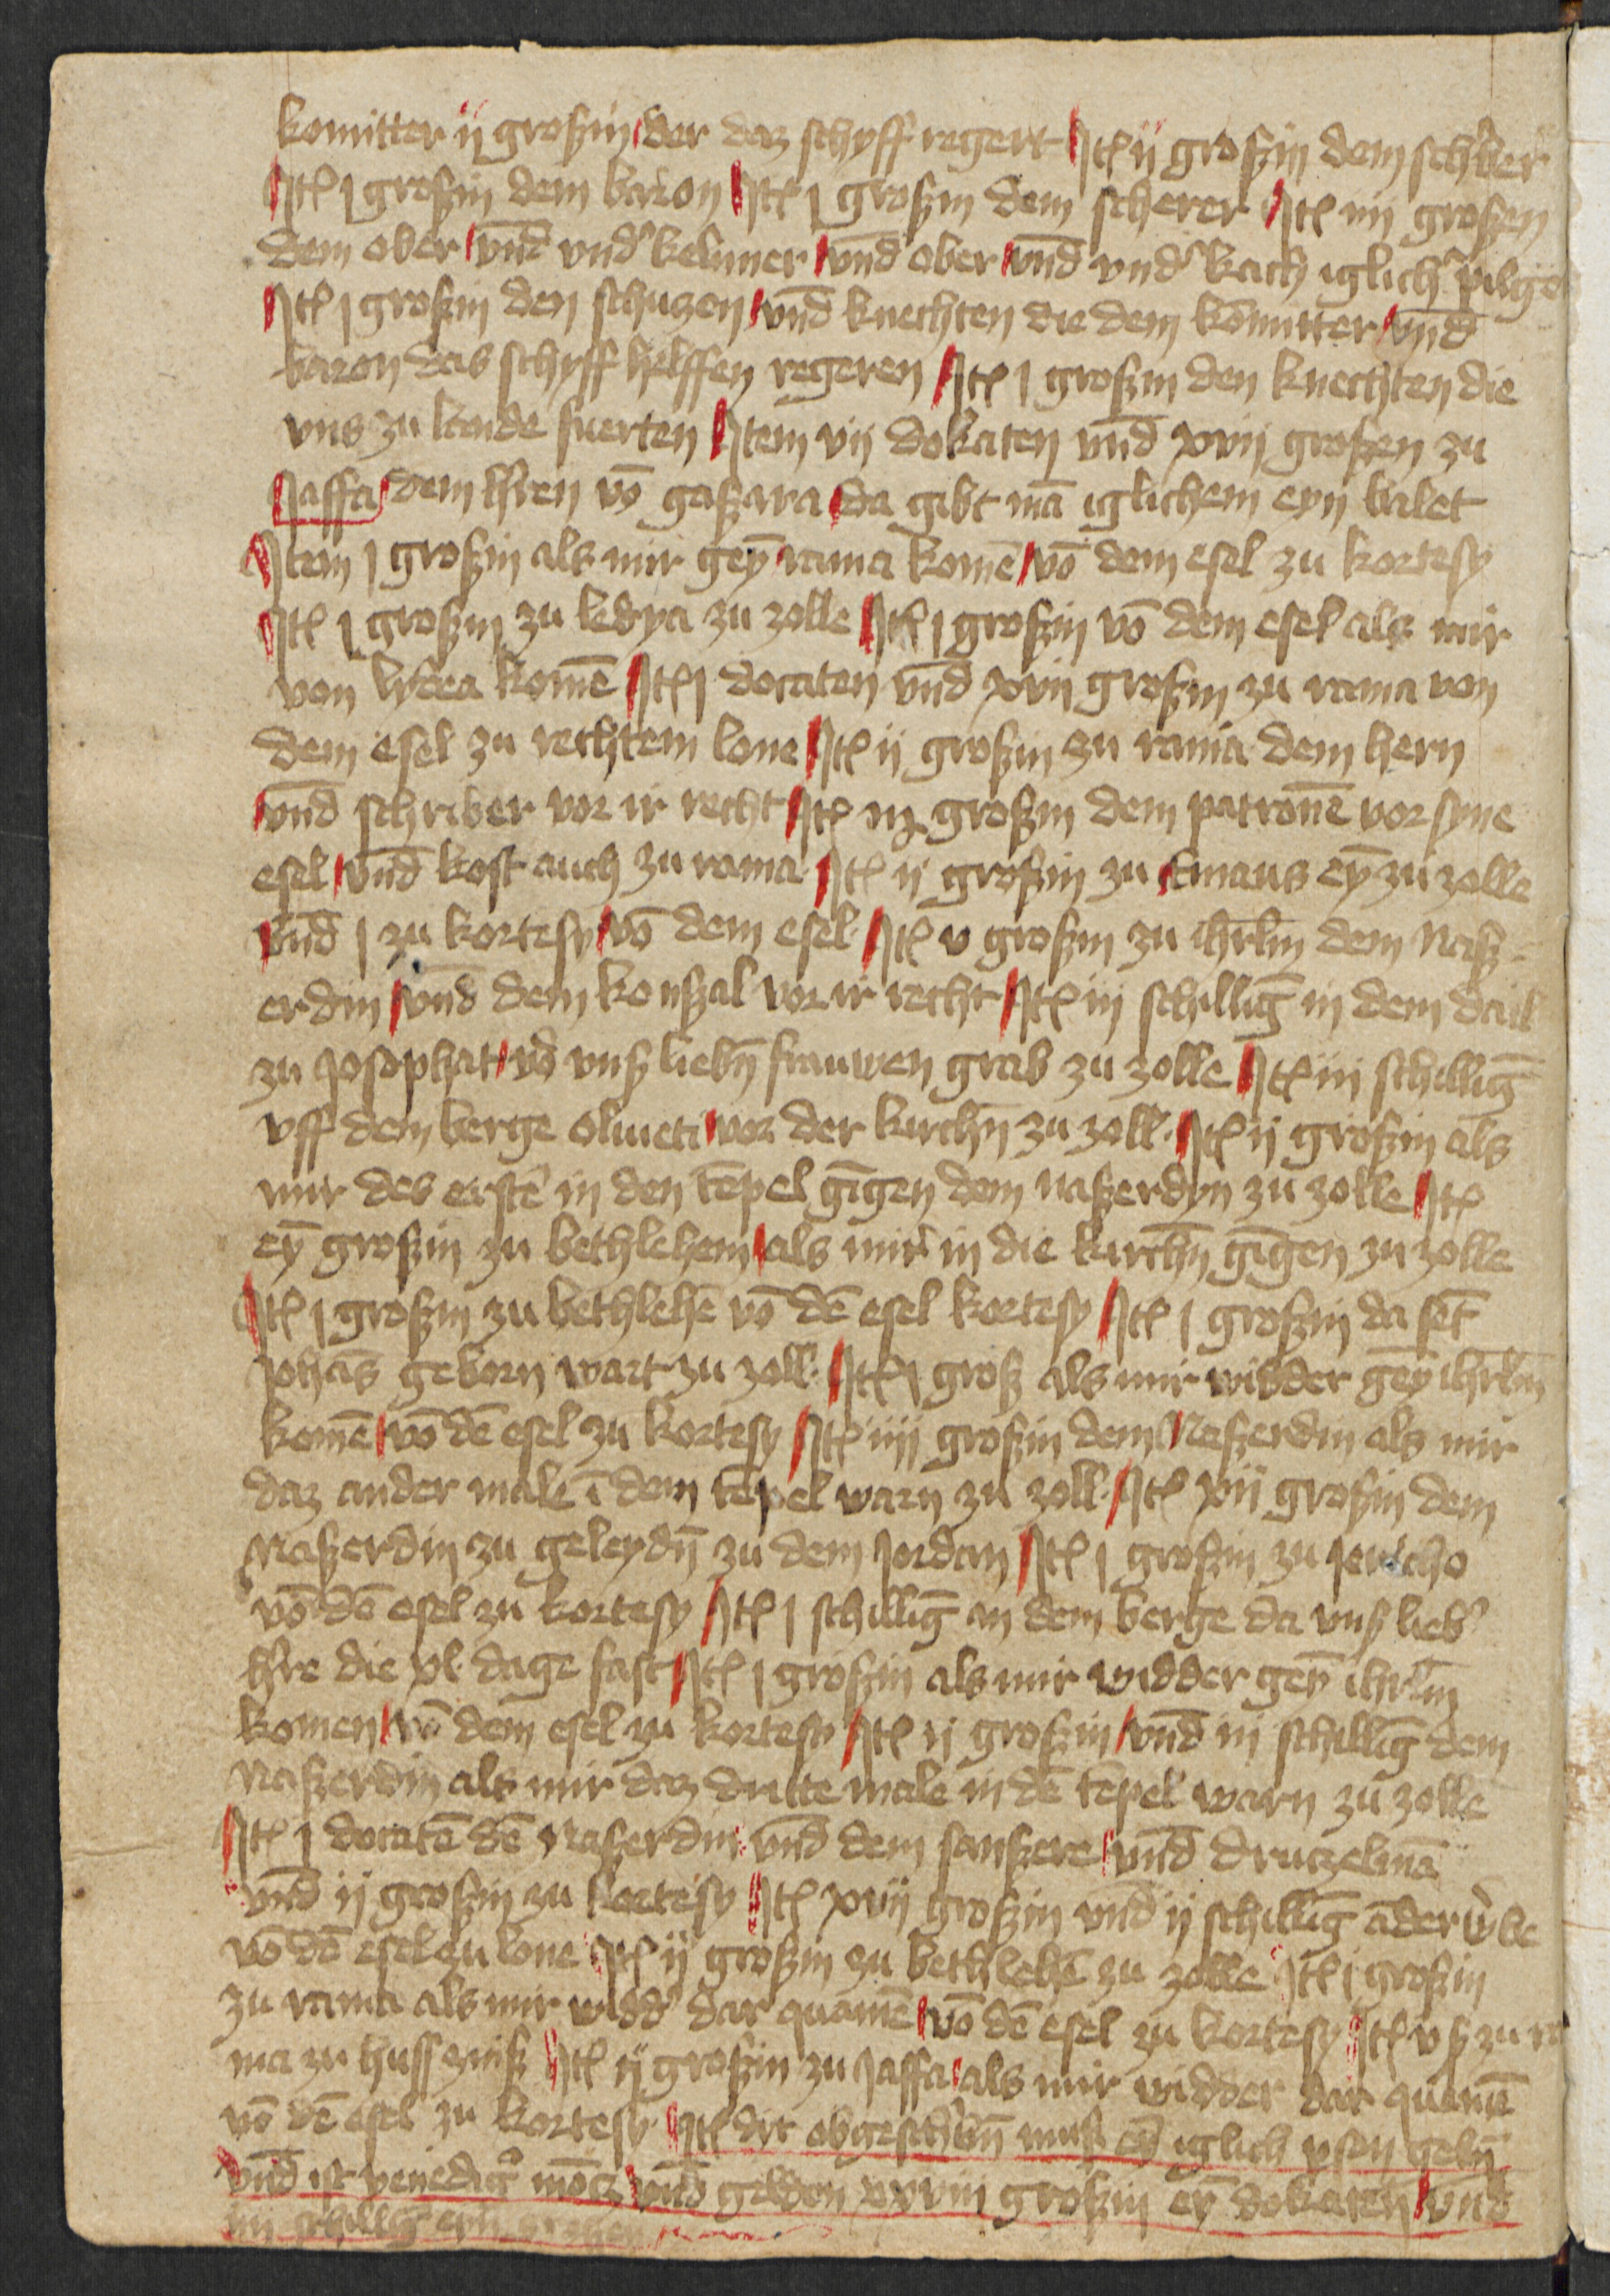 komitter ij großin der daz schyff regert Itē ij großin dem schriber
Itē j großin dem baron Itē j großin dem scherer Itē iiij großen
dem ober vnd vnd' kelnner vnd ober vnd vnd' kach iglich' pilg'
Itē j großin den schuzen vnd knechten die dem komitter vnd
baron das schyff helffen regeren Itē j großin den knechten die
vns zu lande fuerten Item vij dokaten vnd xvij großen zu
Jaffa dem h'ren vō gaßara da gibt mā iglichem eyn balet
Item j großin als mir geȳ rama komē vō dem esel zu kortesy
Itē j großin zu ledya zu zolle Itē j großin vō dem esel als mir
von lydea komē Itē j docaten vnd xvij großin zu rama von
dem esel zu rechtem lone Itē ij großin zu rama dem hern
vnd schriber vor ir recht Itē großin dem patronē vor syne
esel vnd kost auch zu rama Itē ij großin zu Emaus eȳ zu zolle
vnd j zu kortesy vō dem esel Itē v großin zu ihrlm dem Naß
erdin vnd dem konßal vor ir recht Itē iij schilligē in dem dail
zu Josophat vō vnß liebn̄ frauwen grab zu zolle Itē iij schilligē
vff dem berge oliueti vor der kirchn̄ zu zoll Itē ij großin als
mir des erstē in den tēpel gīgen dem naßerdyn zu zolle Itē
eȳ großin zu bethlehem als mir in die kirchn̄ gīgen zu zolle
Itē j großin zu bethlehē vō dē esel kortesy Itē j großin da sēt
Johās geborn wart zu zoll Itē j groß als mir widder geȳ ihrlm
komē vō dē esel zu kortesy Itē iiij großin dem Naßerdin als mir
daz ander male ī dem tēpel warn zu zoll Itē xij großin dem
Naßerdin zu geleydn̄ zu dem Jordan Itē j großin zu Jericho
vō dē esel zu kortesy Itē j schilligē an dem berge da vnß lieb'
h're die xl dage fast Itē j großin als mir widder geȳ ihrlm
komen vō dem esel zu kortesy Itē ij großin vnd iij schilligē dem
Naßerdin als mir daz dritte male in dē tēpel warn zu zolle
Itē j docatē dē Naßerdin vnd dem sanßere vnd druczelmā
vnd ij großin zu kortesy Itē xvij großin vnd ij schilligē
vō dē esel zu lone Itē ij großin zu bethlehē zu zolle Itē j großin
zu rama als mir widd' dar quamē vō dē esel zu kortesy Itē v ß zu ra
ma zu hussczinß Itē ij großin zu Jaffa als mir widder dar quamē
vō dē esel zu kortesy Itē dit obgeschribn̄ muß eȳ iglich pson gebn̄
vnd ist venedig' moncz vnd gelden xxviij großin eȳ dokaten vnd
iiij schillig eyn großen